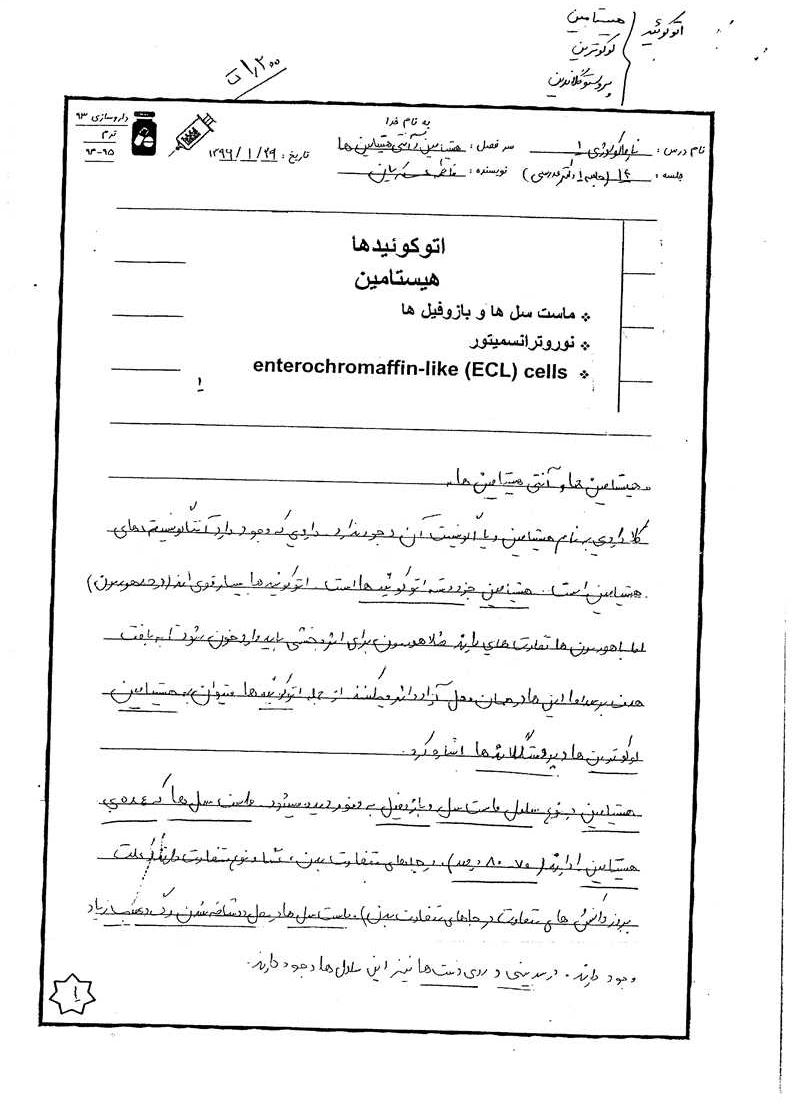 اتوکوئید
هیستامین
لوکوترین
پروستوگلاندین
۱۲۰۰ ت
به نام خدا
داروسازی ۹۳
ترم
۹۵-۹۴
نام درس: فارماکولوژی ۱ سر فصل: هیستامین و آنتی هیستامین ها تاریخ: ۱۳۹۶/۱/۲۹
جلسه: نویسنده:
اتوکوئیدها
هیستامین
❖ ماست سل ها و بازوفیل ها
❖ نوروترانسمیتور
❖ enterochromaffin-like (ECL) cells
۱
هیستامین ها و آنتی هیستامین ها
کلا داروی به نام هیستامین و یا آگونیست آن وجود ندارد. داروی که وجود دارد آنتاگونیست های
هیستامین است. هیستامین جزو دسته اتوکوئید ها است. اتوکوئید ها بسیار قوی اند (در حد هورمون)
اما با هورمون ها تفاوت های دارند مثلا هورمون برای اثر بخشی باید وارد خون شود تا به بافت
هدف برسد اما این ها در همان محل آزاد اثر میکنند. از جمله اتوکوئید ها میتوان به هیستامین
لوکوترین ها و پروستگلاندها اشاره کرد.
هیستامین در نوع سلول ماست سل و بازوفیل به وفور دیده میشود. ماست سل ها که عمده ی
هیستامین را دارند (۷۰-۸۰ درصد). در جاهای متفاوت بدن، تعداد و نوع متفاوت دارند (علت
بروز واکنش های متفاوت در جاهای متفاوت بدن). ماست سل ها در محل دو شاخه شدن رگ و عصب زیاد
وجود دارند. در بینی و روی دست ها نیز این سلول ها وجود دارند.
۱